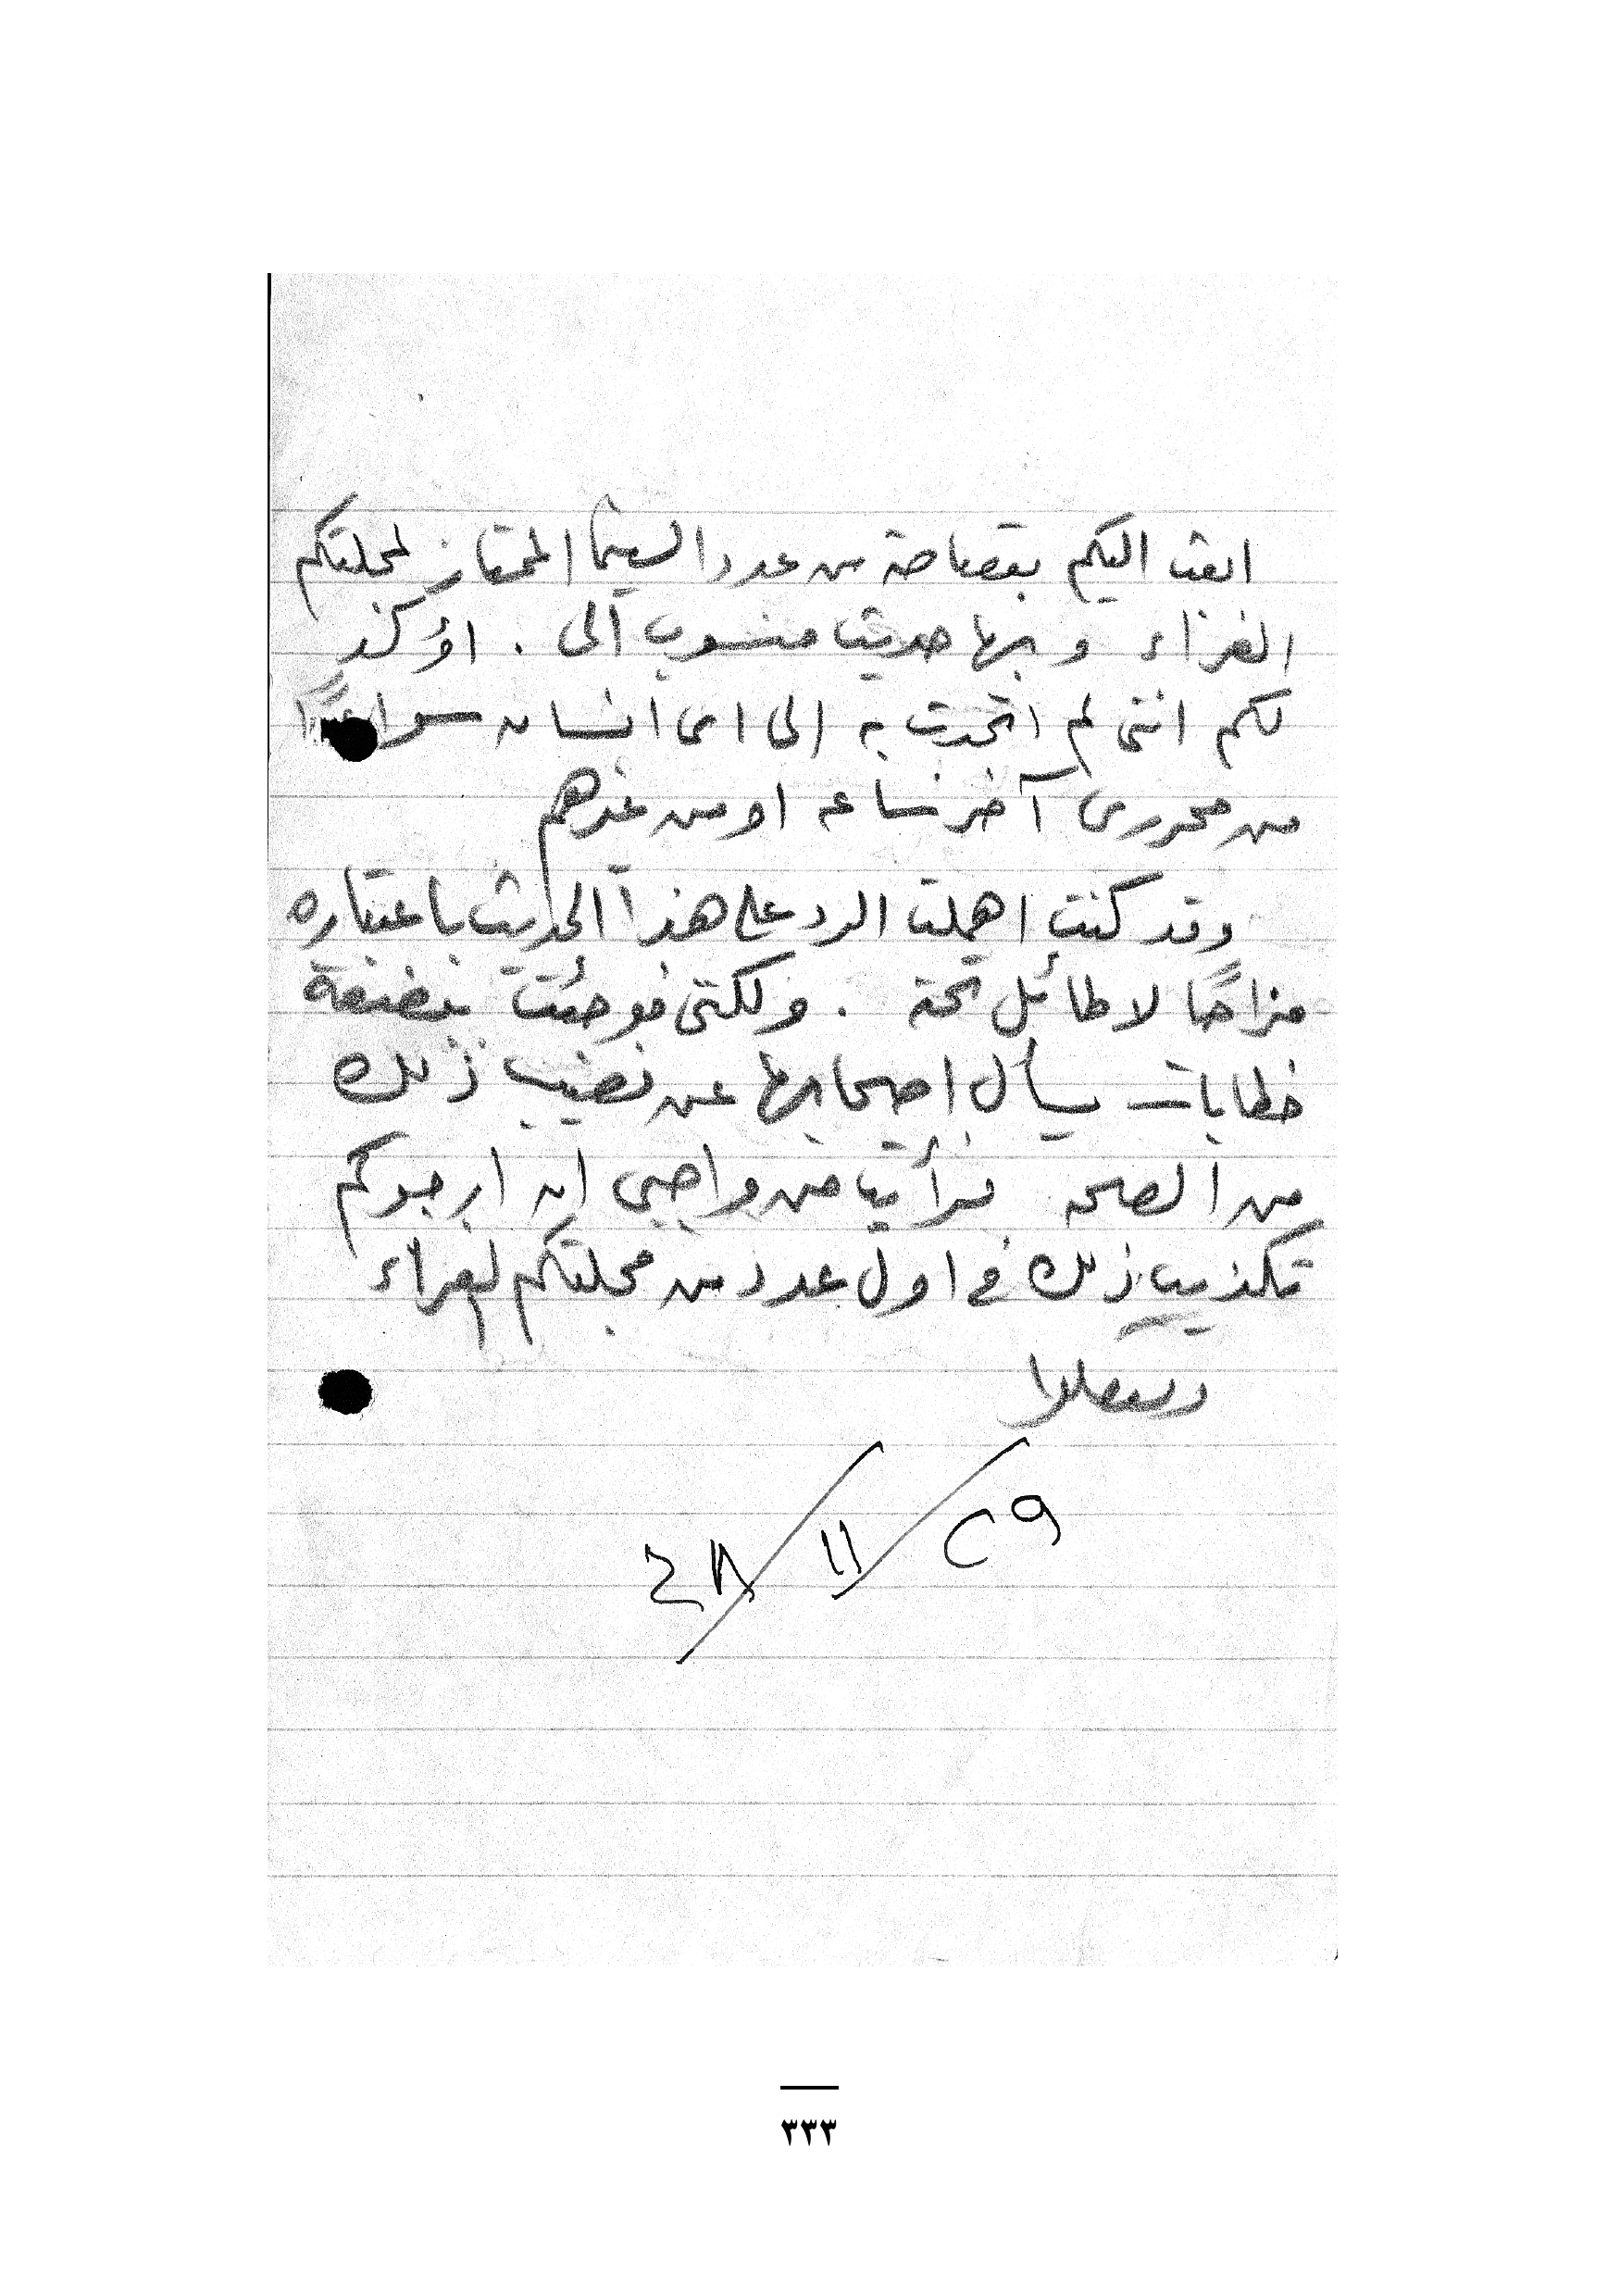 ابعث اليكم بقصاصة من عدد السينما الممتاز لمجلتكم
الغراء وبها حديث منسوب الى . اؤكد
لكم اننى لم اتحدث به إلى اى انسان سواء
من محررى آخر ساعة او من غيرهم
وقد كنت اهملت الرد على هذا الحديث باعتباره
مزاحًا لا طائل تحته . ولكنى فوجئت ببضعة
خطابات يسأل اصحابها عن نصيب ذلك
من الصحة فرأيت من واجبى ان ارجوكم
تكذيب ذلك فى اول عدد من مجلتكم الغراء
وتفضلوا
٢٩/١١/٤٨
٣٣٣